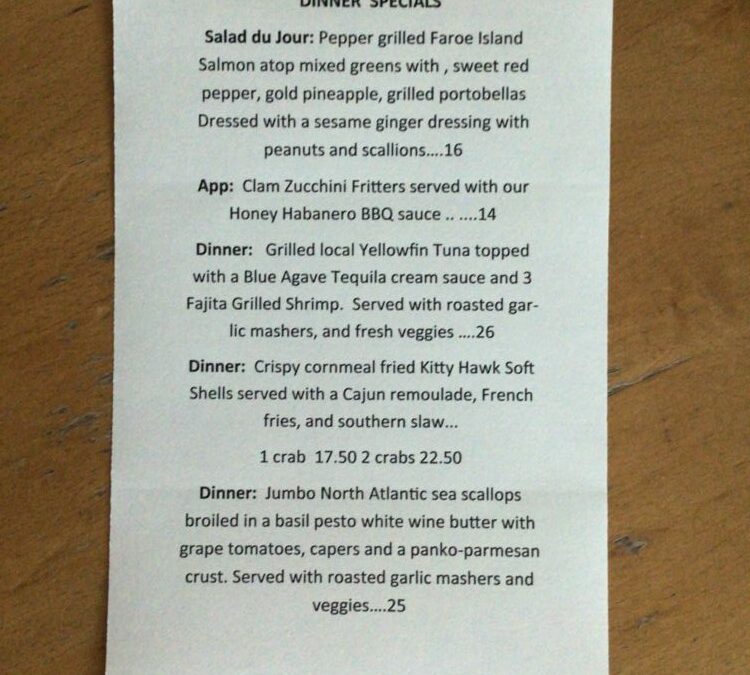 DINNER SPECIALS
Salad du Jour: Pepper grilled Faroe Island
Salmon atop mixed greens with , sweet red
pepper, gold pineapple, grilled portobellas
Dressed with a sesame ginger dressing with
peanuts and scallions....16
App: Clam Zucchini Fritters served with our
Honey Habanero BBQ sauce .. ....14
Dinner: Grilled local Yellowfin Tuna topped
with a Blue Agave Tequila cream sauce and 3
Fajita Grilled Shrimp. Served with roasted gar-
lic mashers, and fresh veggies ....26
Dinner: Crispy cornmeal fried Kitty Hawk Soft
Shells served with a Cajun remoulade, French
fries, and southern slaw...
1 crab 17.50 2 crabs 22.50
Dinner: Jumbo North Atlantic sea scallops
broiled in a basil pesto white wine butter with
grape tomatoes, capers and a panko-parmesan
crust. Served with roasted garlic mashers and
veggies....25